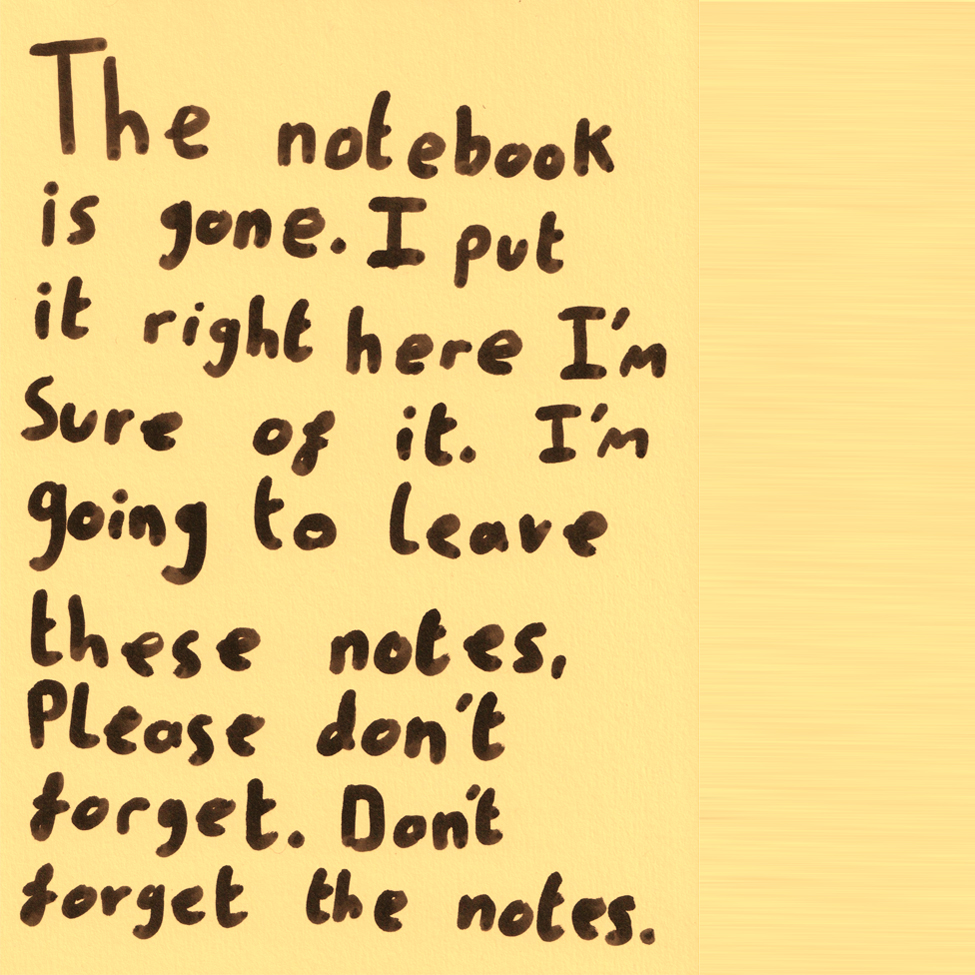 The notebook
is gone. I put
it right here I'm
Sure of it. I'm
going to leave
these notes,
Please don't
forget. Don't
forget the notes.